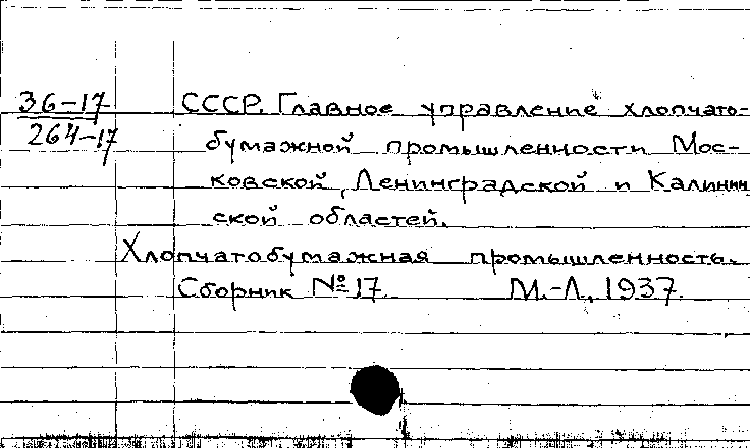 36-17
264-17
СССР. Главное управление хлопчато-
бумажной промышленности Мос-
ковской, Ленинградской и Калинин
ской областей.
Хлопчатобумажная промышленность.
Сборник №17. М.-Л., 1937.